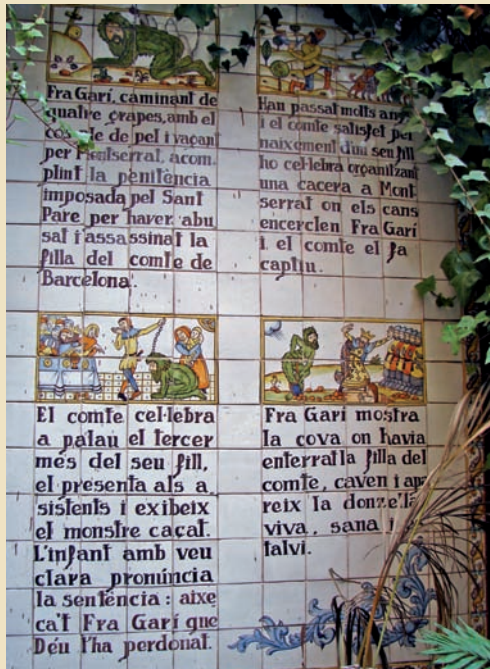 Fra Garí, caminant de
quatre grapes, amb el
cos ple de pel i vagant
per Montserrat, acom
plint la penitència
imposada pel Sant
Pare per haver abu
sat i assassinat la
filla del comte de
Barcelona.
Han passat molts anys
i el comte satisfet pel
naixement d'un seu fill
ho cel·lebra organitzant
una cacera a Mont
serrat on els cans
encerclen Fra Garí
i el comte el fa
captiu.
El comte cel·lebra
a palau el tercer
mes del seu fill,
el presenta als a
sistents i exibeix
el monstre caçat.
L'infant amb veu
clara pronúncia
la sentència: aixe
ca't Fra Garí que
Déu t'ha perdonat.
Fra Garí mostra
la cova on havia
enterrat la filla del
comte, caven i apa
reix la donzella
viva, sana i
talvi.